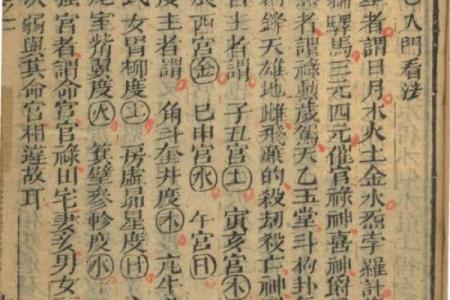 入門看法
者謂日月水火土金水炁孛羅計
驛馬三元四元催官祿神喜神爵
者謂祿勳歲駕天乙玉堂斗杓卦
鋒天雄地雌飛廉的殺劫殺亡神
主者謂 子丑宮土 寅亥宮木
辰酉宮金 巳申宮水 午宮日
度主者謂 角斗奎井度木 亢牛
氐女胃柳度土 房虛昴星度日
尾室觜翼度火 箕壁參軫度水
強宮者謂命宮官祿田宅妻妾男女
次弱與其命宮相違故耳